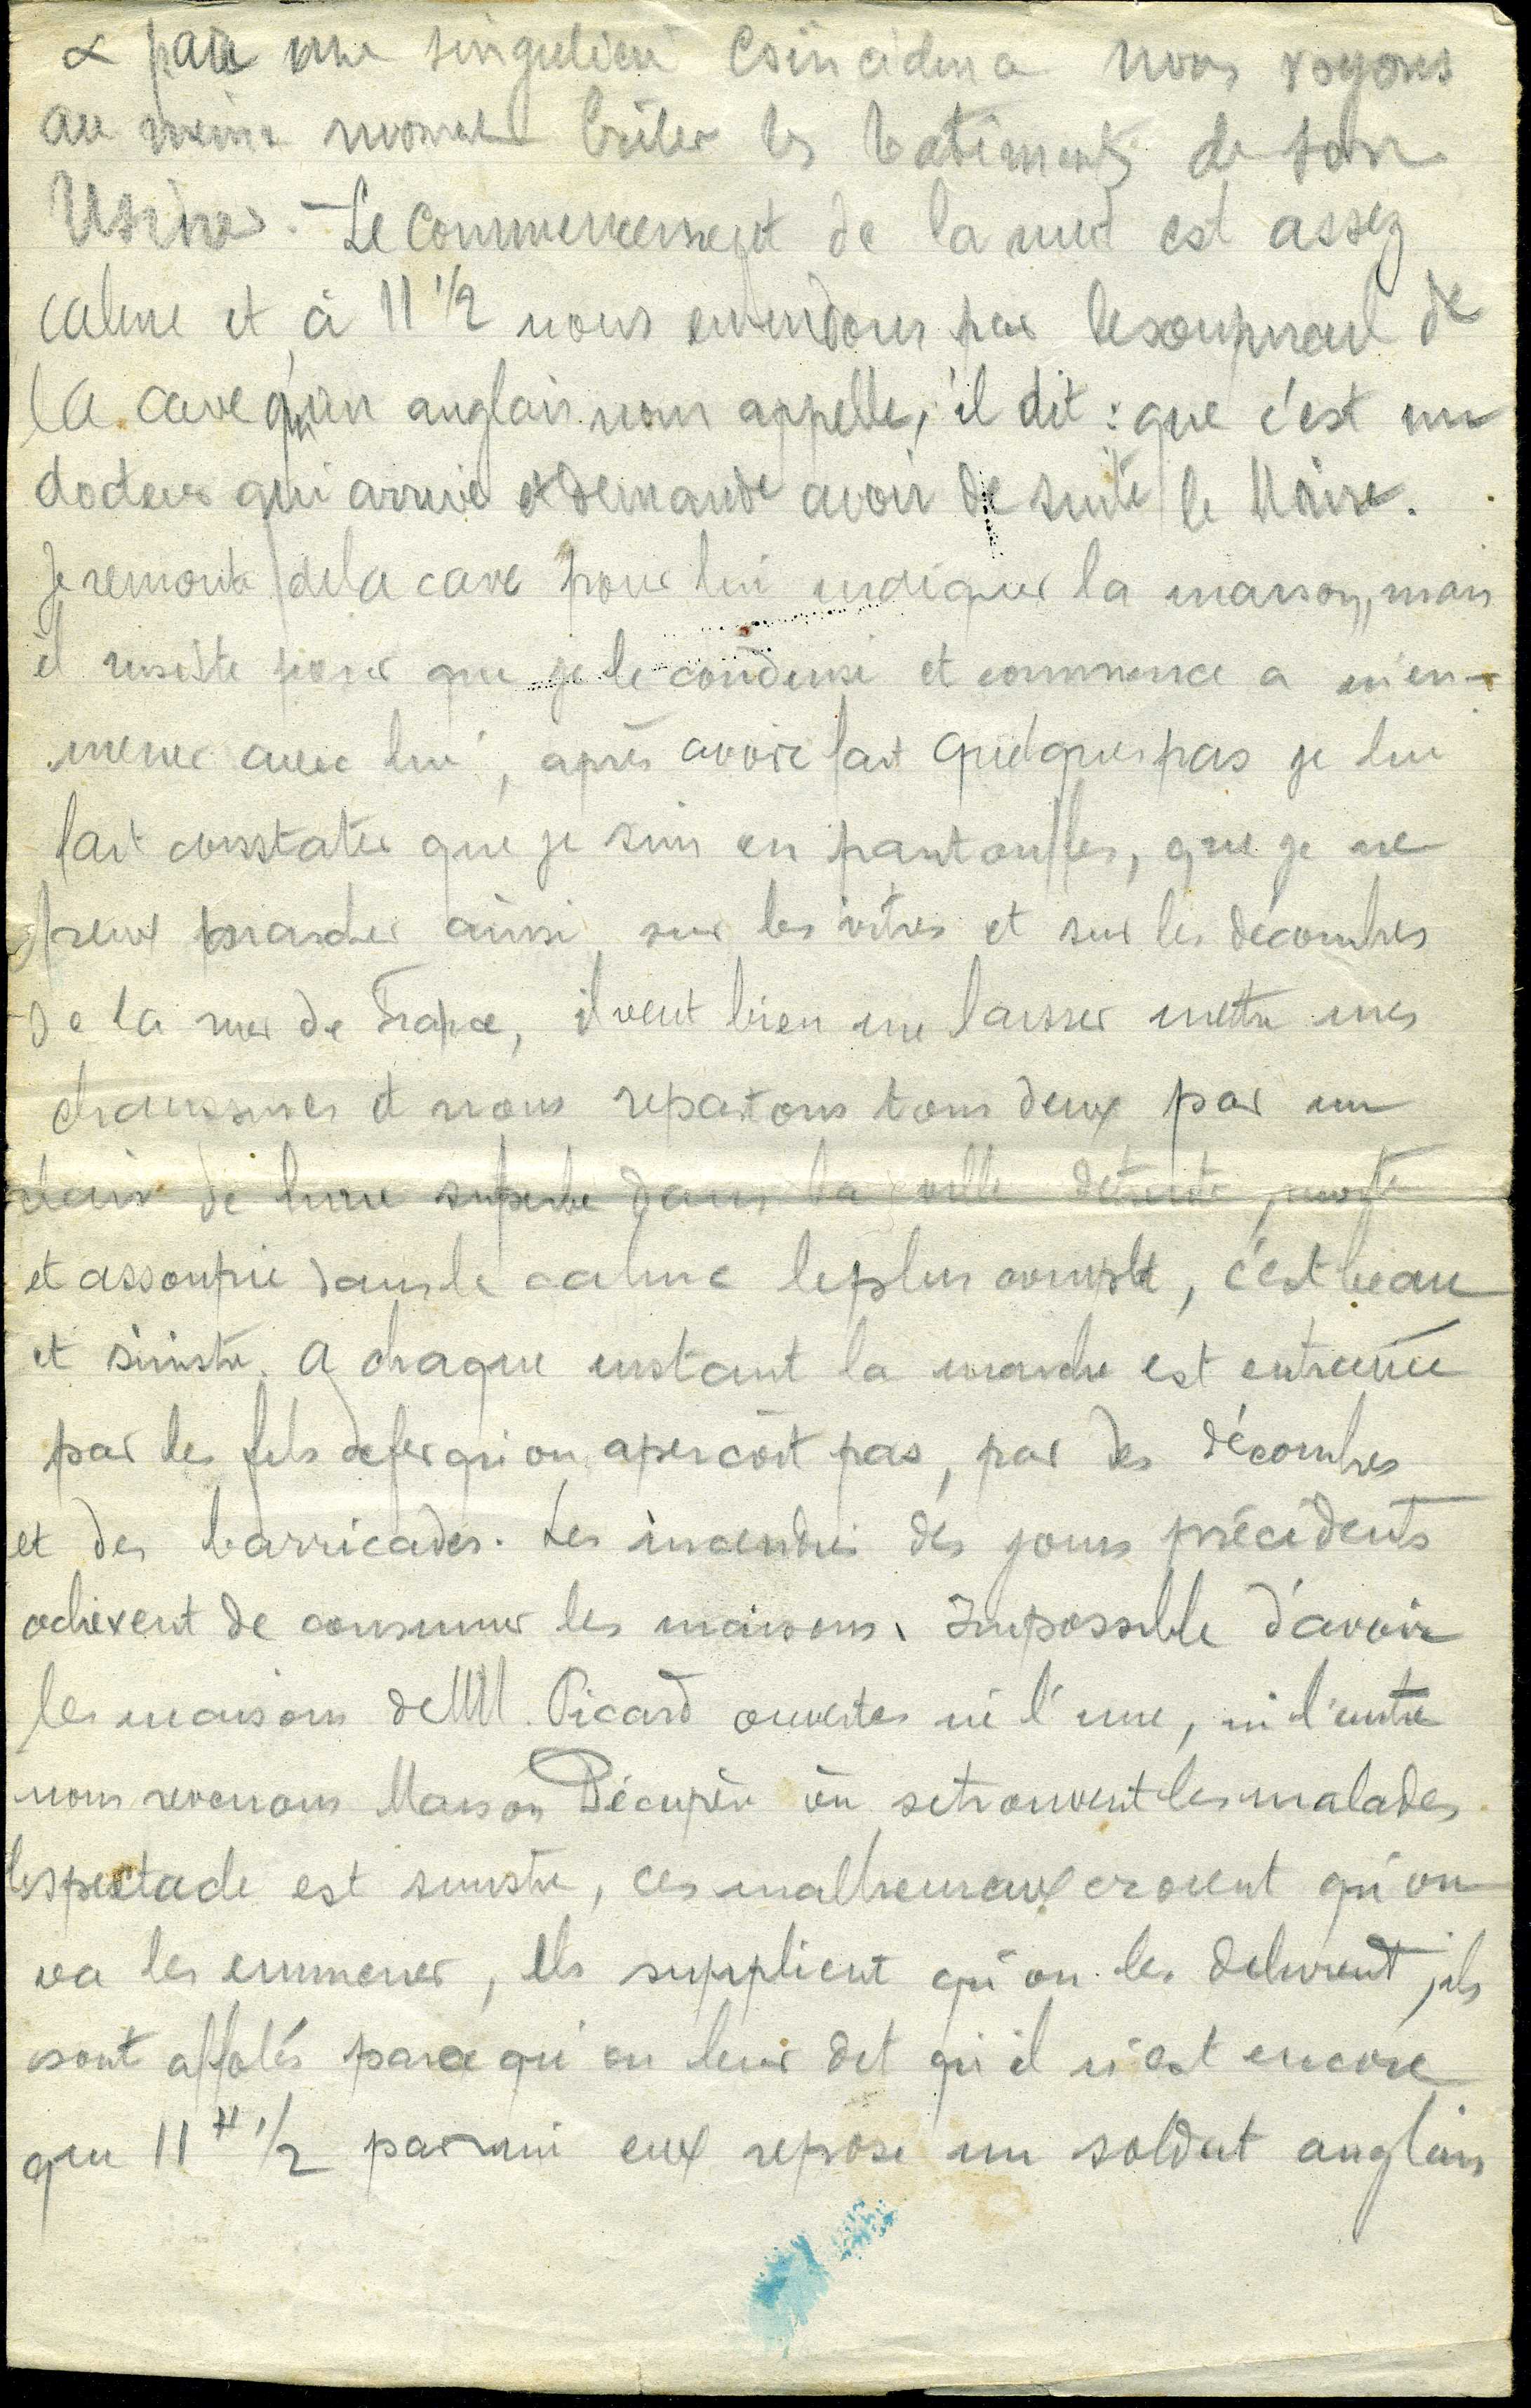 & par une singulière Coïncidence nous voyons
au même moment brûler les batiments de son
Usine. - Le commencement de la nuit est assez
calme et à 11 1/2 nous entendons par le soupirail de
la cave qu'un anglais nous appelle, il dit : que c'est un
docteur qui arrive et demande avoir de suite le Maire.
Je remonte de la cave pour lui indiquer la maison, mais
il insiste pour que je le conduise et commence a m'em-
mener avec lui, après avoir fait quelques pas je lui
fait constater que je suis en pantoufles, que je ne
peux marcher ainsi sur les vitres et sur les décombres
de la rue de France, il veut bien me laisser mettre mes
chaussures et nous repartons tous deux par un
clair de lune superbe dans la ville détruite, morte
et assoupie dans le calme le plus complet, c'est beau
et sinistre. A chaque instant la marche est entravée
par les fils de fer qu'on aperçoit pas, par des décombres
et des barricades. Les incendies des jours précédents
achèvent de consumer les maisons. Impossible d'avoir
les maisons de MM. Picard ouvertes ni l'une, ni l'autre
nous revenons Maison Décupère où se trouvent les malades
le spectacle est sinistre, ces malheureux croient qu'on
va les emmener, ils supplient qu'on les délivrent, ils
sont affolés parce qu'on leur dit qu'il n'est encore
que 11 H 1/2 parmi eux repose un soldat anglais